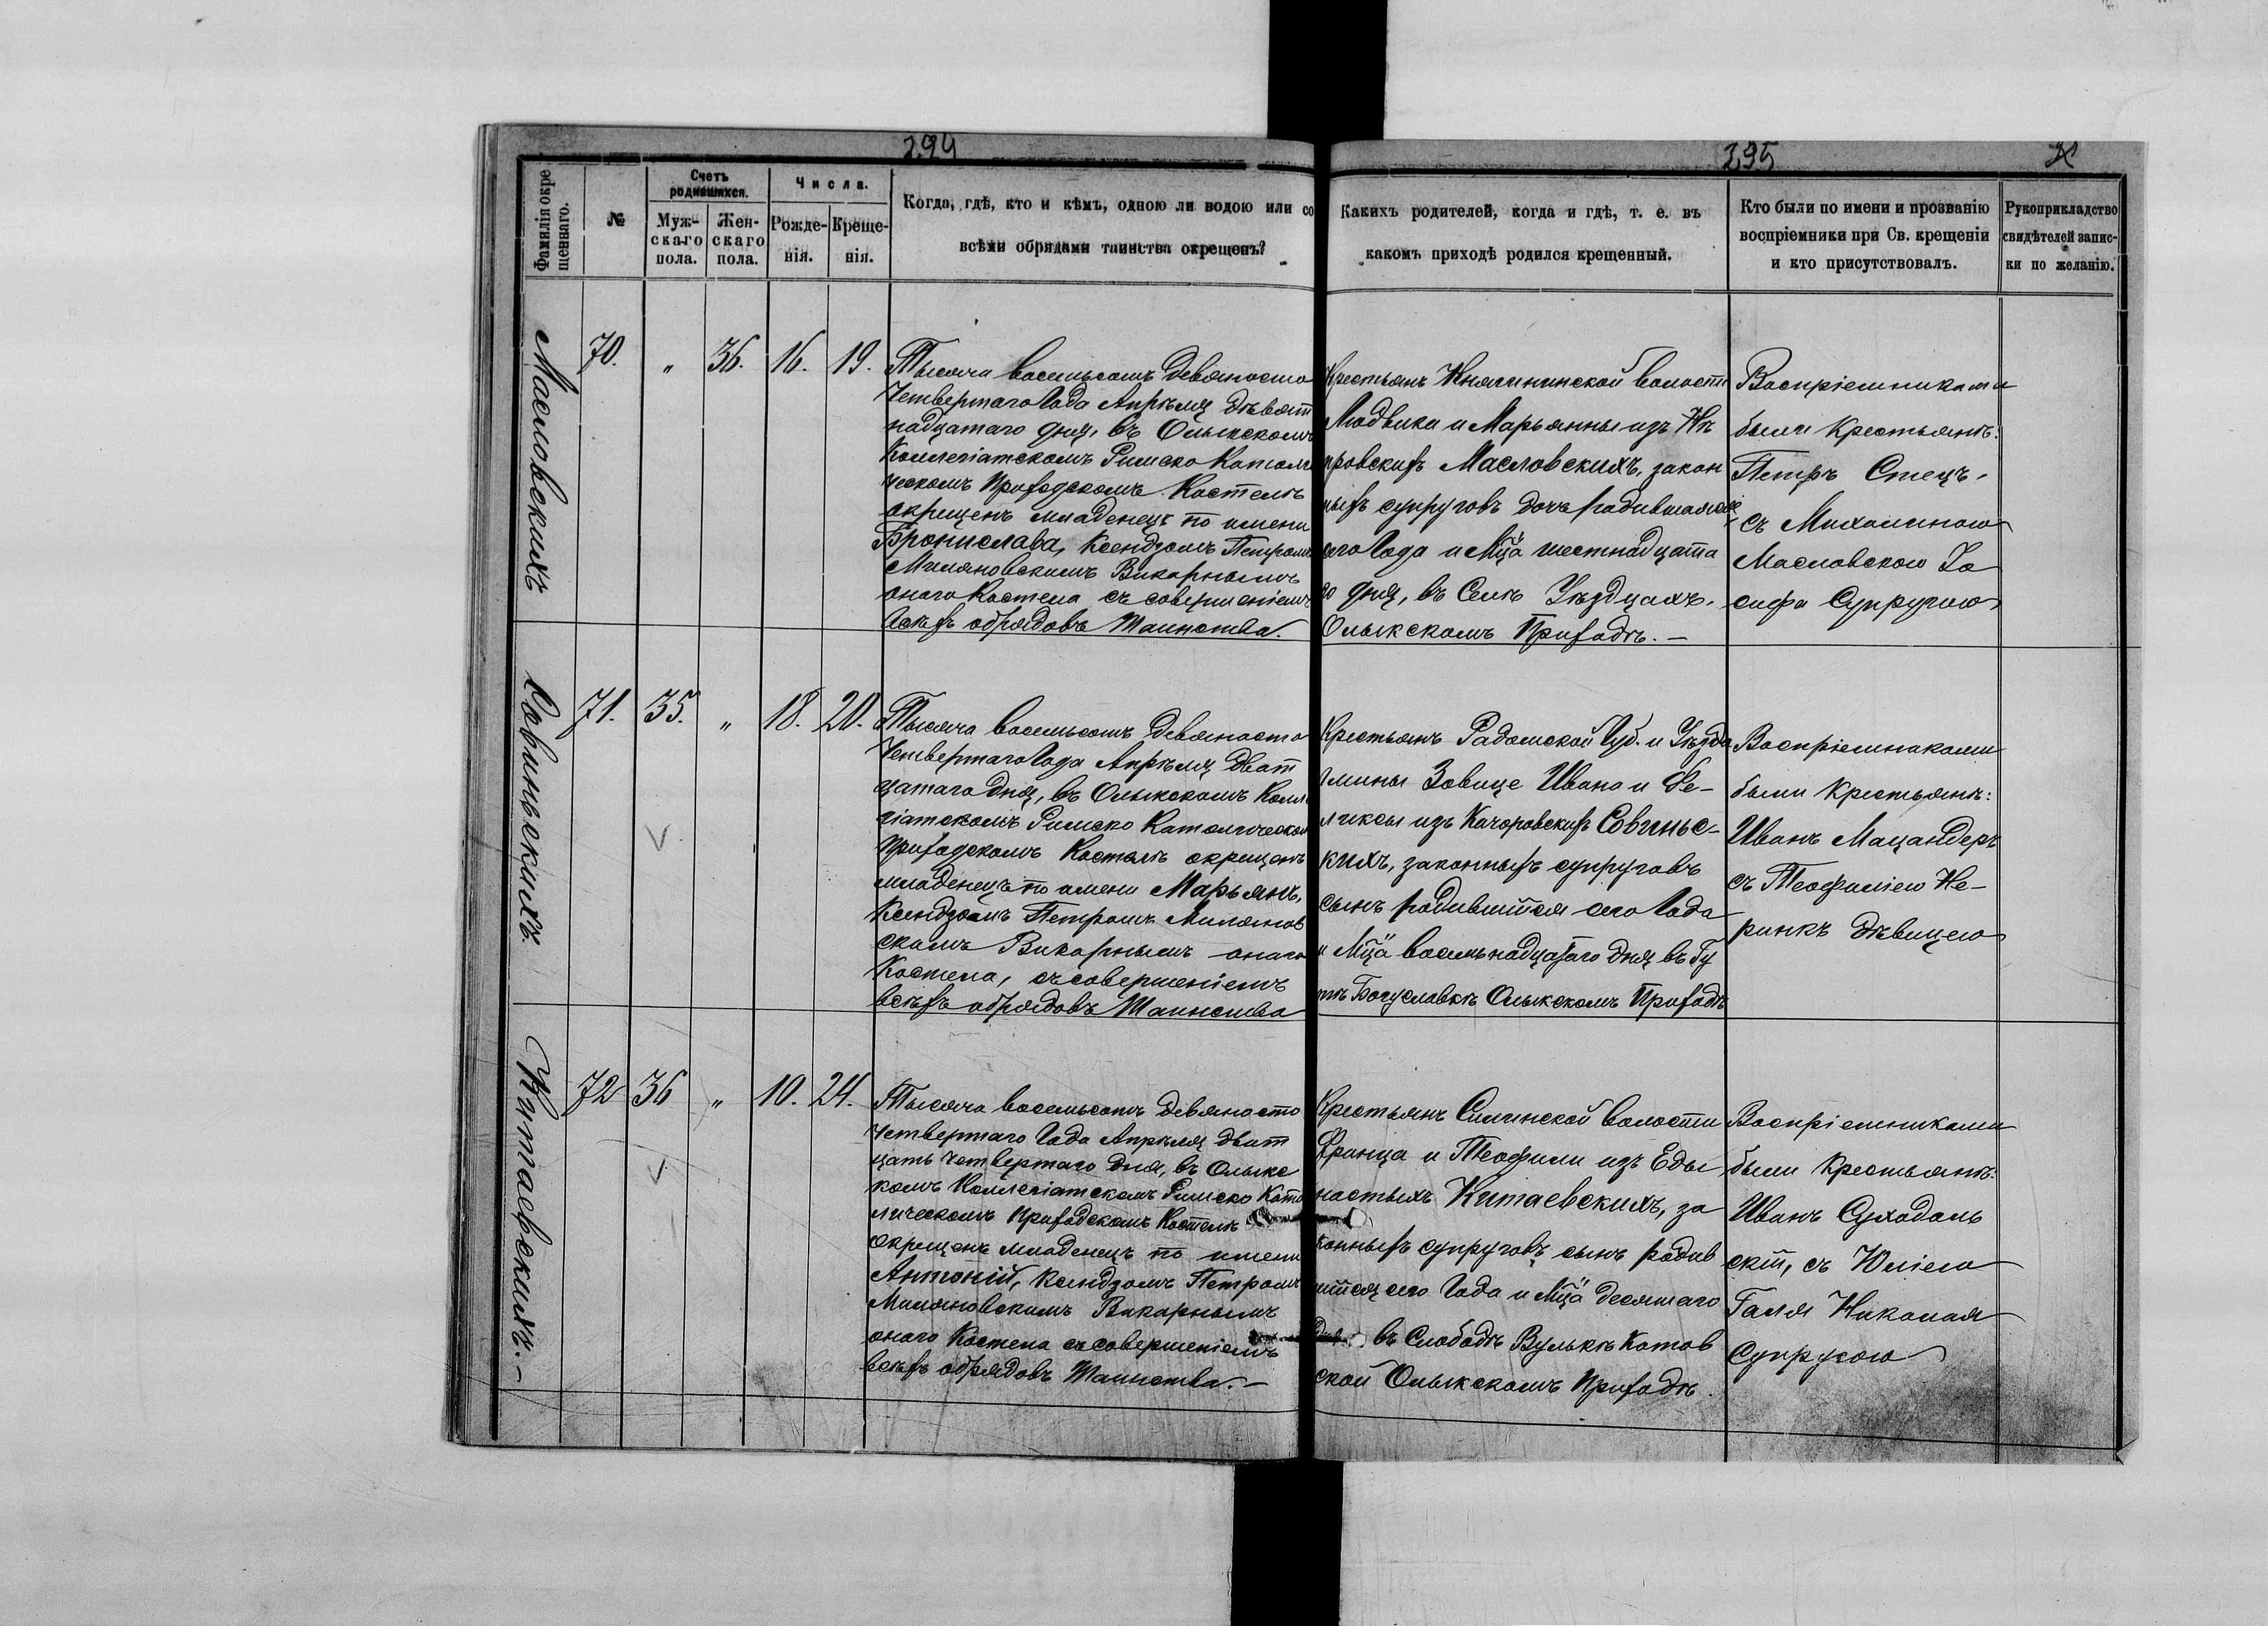 294
Фамилія окре
щеннаго.
№
Счетъ
родившихся.
Муж-
скаго
пола.
Жен-
скаго
пола.
Числа.
Рожде-
нія.
Креще-
нія.
Когда, гдѣ, кто и кѣмъ, одною ли водою или со
всѣми обрядами таинства окрещенъ?
295
Какихъ родителей, когда и гдѣ, т. е. въ
какомъ приходѣ родился крещенный.
Кто были по имени и прозванію
воспріемники при Св. крещеніи
и кто присутствовалъ.
Рукоприкладство
свидѣтелей запис-
ки по желанію.
Масловскихъ
70.
"
36.
16.
19.
Тысяча восемьсотъ девяносто
Четвертаго Года Апрѣля дѣвят
надцатаго дня, въ Олыкскомъ
Коллегіатскомъ Римско Католи
ческомъ Приходскомъ Костелѣ
окрещенъ младенецъ по имени
Бронислава, Ксендзомъ Петромъ
Миляновскимъ Викарнымъ
онаго Костела съ совершеніемъ
всѣхъ обрядовъ Таинства.
Крестьянъ Княгининской волости
Людвика и Марьянны изъ
Масловскихъ, закон
ныхъ супруговъ дочь родившаяся
сего Года и Мца шестнадцата
го дня, въ Селѣ Уѣздцахъ,
Олыкскомъ Приходѣ. —
Воспріемниками
были Крестьянѣ:
Петръ Стецъ,
съ Михалиною
Масловскою Іо
сифа Супругою
Совиньскихъ.
71.
35.
"
18.
20.
Тысяча восемьсотъ девяносто
Четвертаго Года Апрѣля дват
цатаго дня, въ Олыкскомъ Колле
гіатскомъ Римско Католическомъ
Приходскомъ Костелѣ окрещенъ
младенецъ по имени Марьянъ,
Ксендзомъ Петромъ Миляновс
скимъ Викарнымъ онаго
Костела, съ совершеніемъ
всѣхъ обрядовъ Таинства
Крестьянъ Радомской Губ. и Уѣзда
Гмины Зовице Ивана и Фе-
ликсы изъ Качоровскихъ Совиньс-
кихъ, законныхъ супруговъ
сынъ родившійся сего Года
и Мца восемьнадцатаго дня въ Гу
тѣ Богуславкѣ Олыкскомъ Приходѣ
Воспріемниками
были Крестьянѣ:
Иванъ Мацандеръ
съ Теофиліею Не-
ринкъ дѣвицею
Китаевскихъ. —
72
36
"
10.
24.
Тысяча восемьсотъ девяносто
четвертаго Года Апрѣля дват
цать четвертаго дня, въ Олыкс
комъ Коллегіатскомъ Римско Като
лическомъ Приходскомъ Костелѣ
окрещенъ младенецъ по имени
Антоній, Ксендзомъ Петромъ
Миляновскимъ Викарнымъ
онаго Костела съ совершеніемъ
всѣхъ обрядовъ Таинства. —
Крестьянъ Силинской волости
Франца и Теофили изъ Еды
настыхъ Китаевскихъ, за
конныхъ супруговъ сынъ родив
шійся сего Года и Мца десятаго
дня въ Слободѣ Вулькѣ Котов
ской Олыкскомъ Приходѣ.
Воспріемниками
были Крестьянѣ:
Иванъ Суходоль
скій, съ Юліею
Галя Николая
Супругою